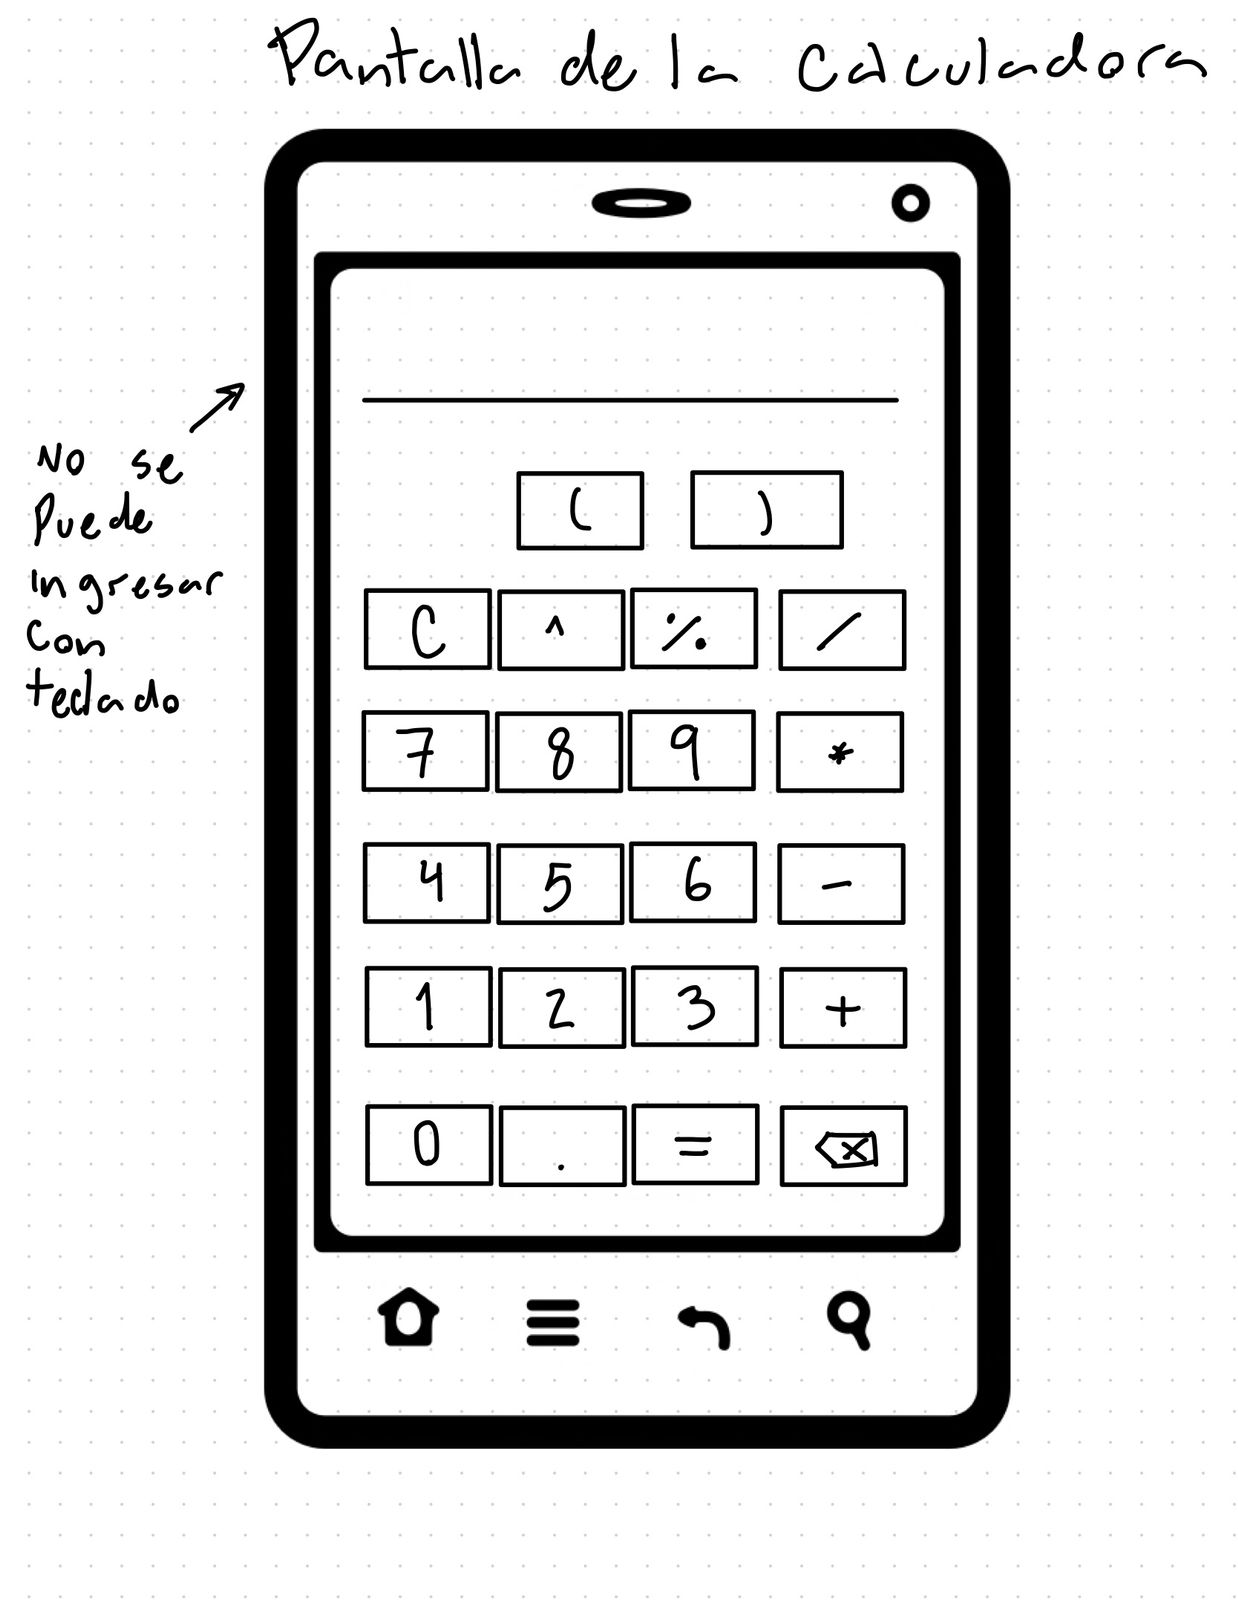 Pantalla de la Calculadora
No se
Puede
ingresar
Con
teclado
( )
C ^ % /
7 8 9 *
4 5 6 -
1 2 3 +
0 . =